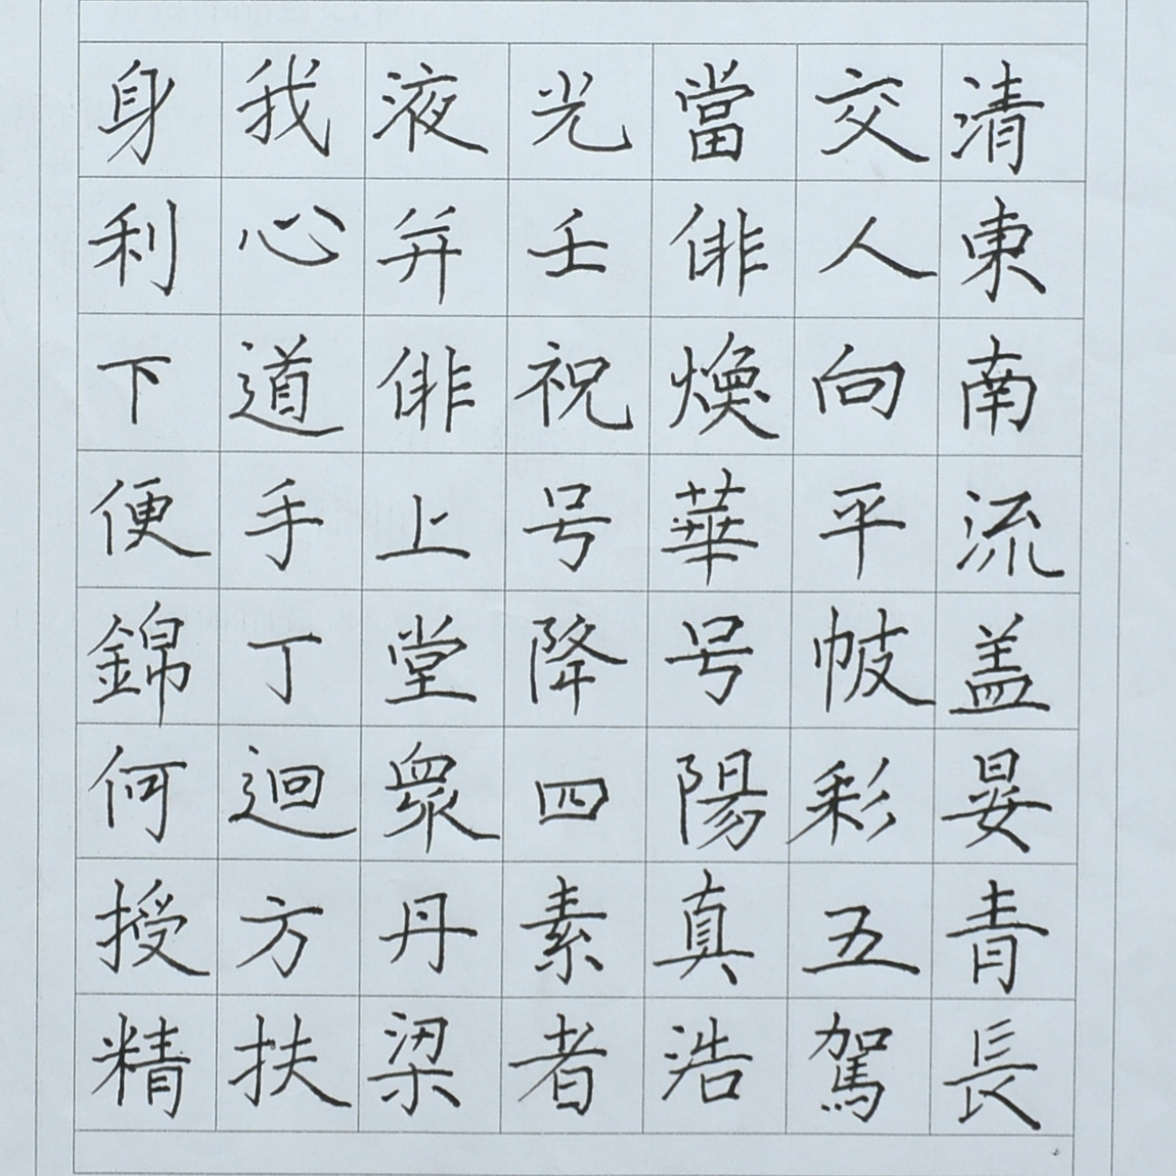 清東南流盖晏青長
交人向平帔彩五駕
當俳煥華号陽真浩
光壬祝号降四素者
液并俳上堂衆丹梁
我心道手丁迴方扶
身利下便錦何授精